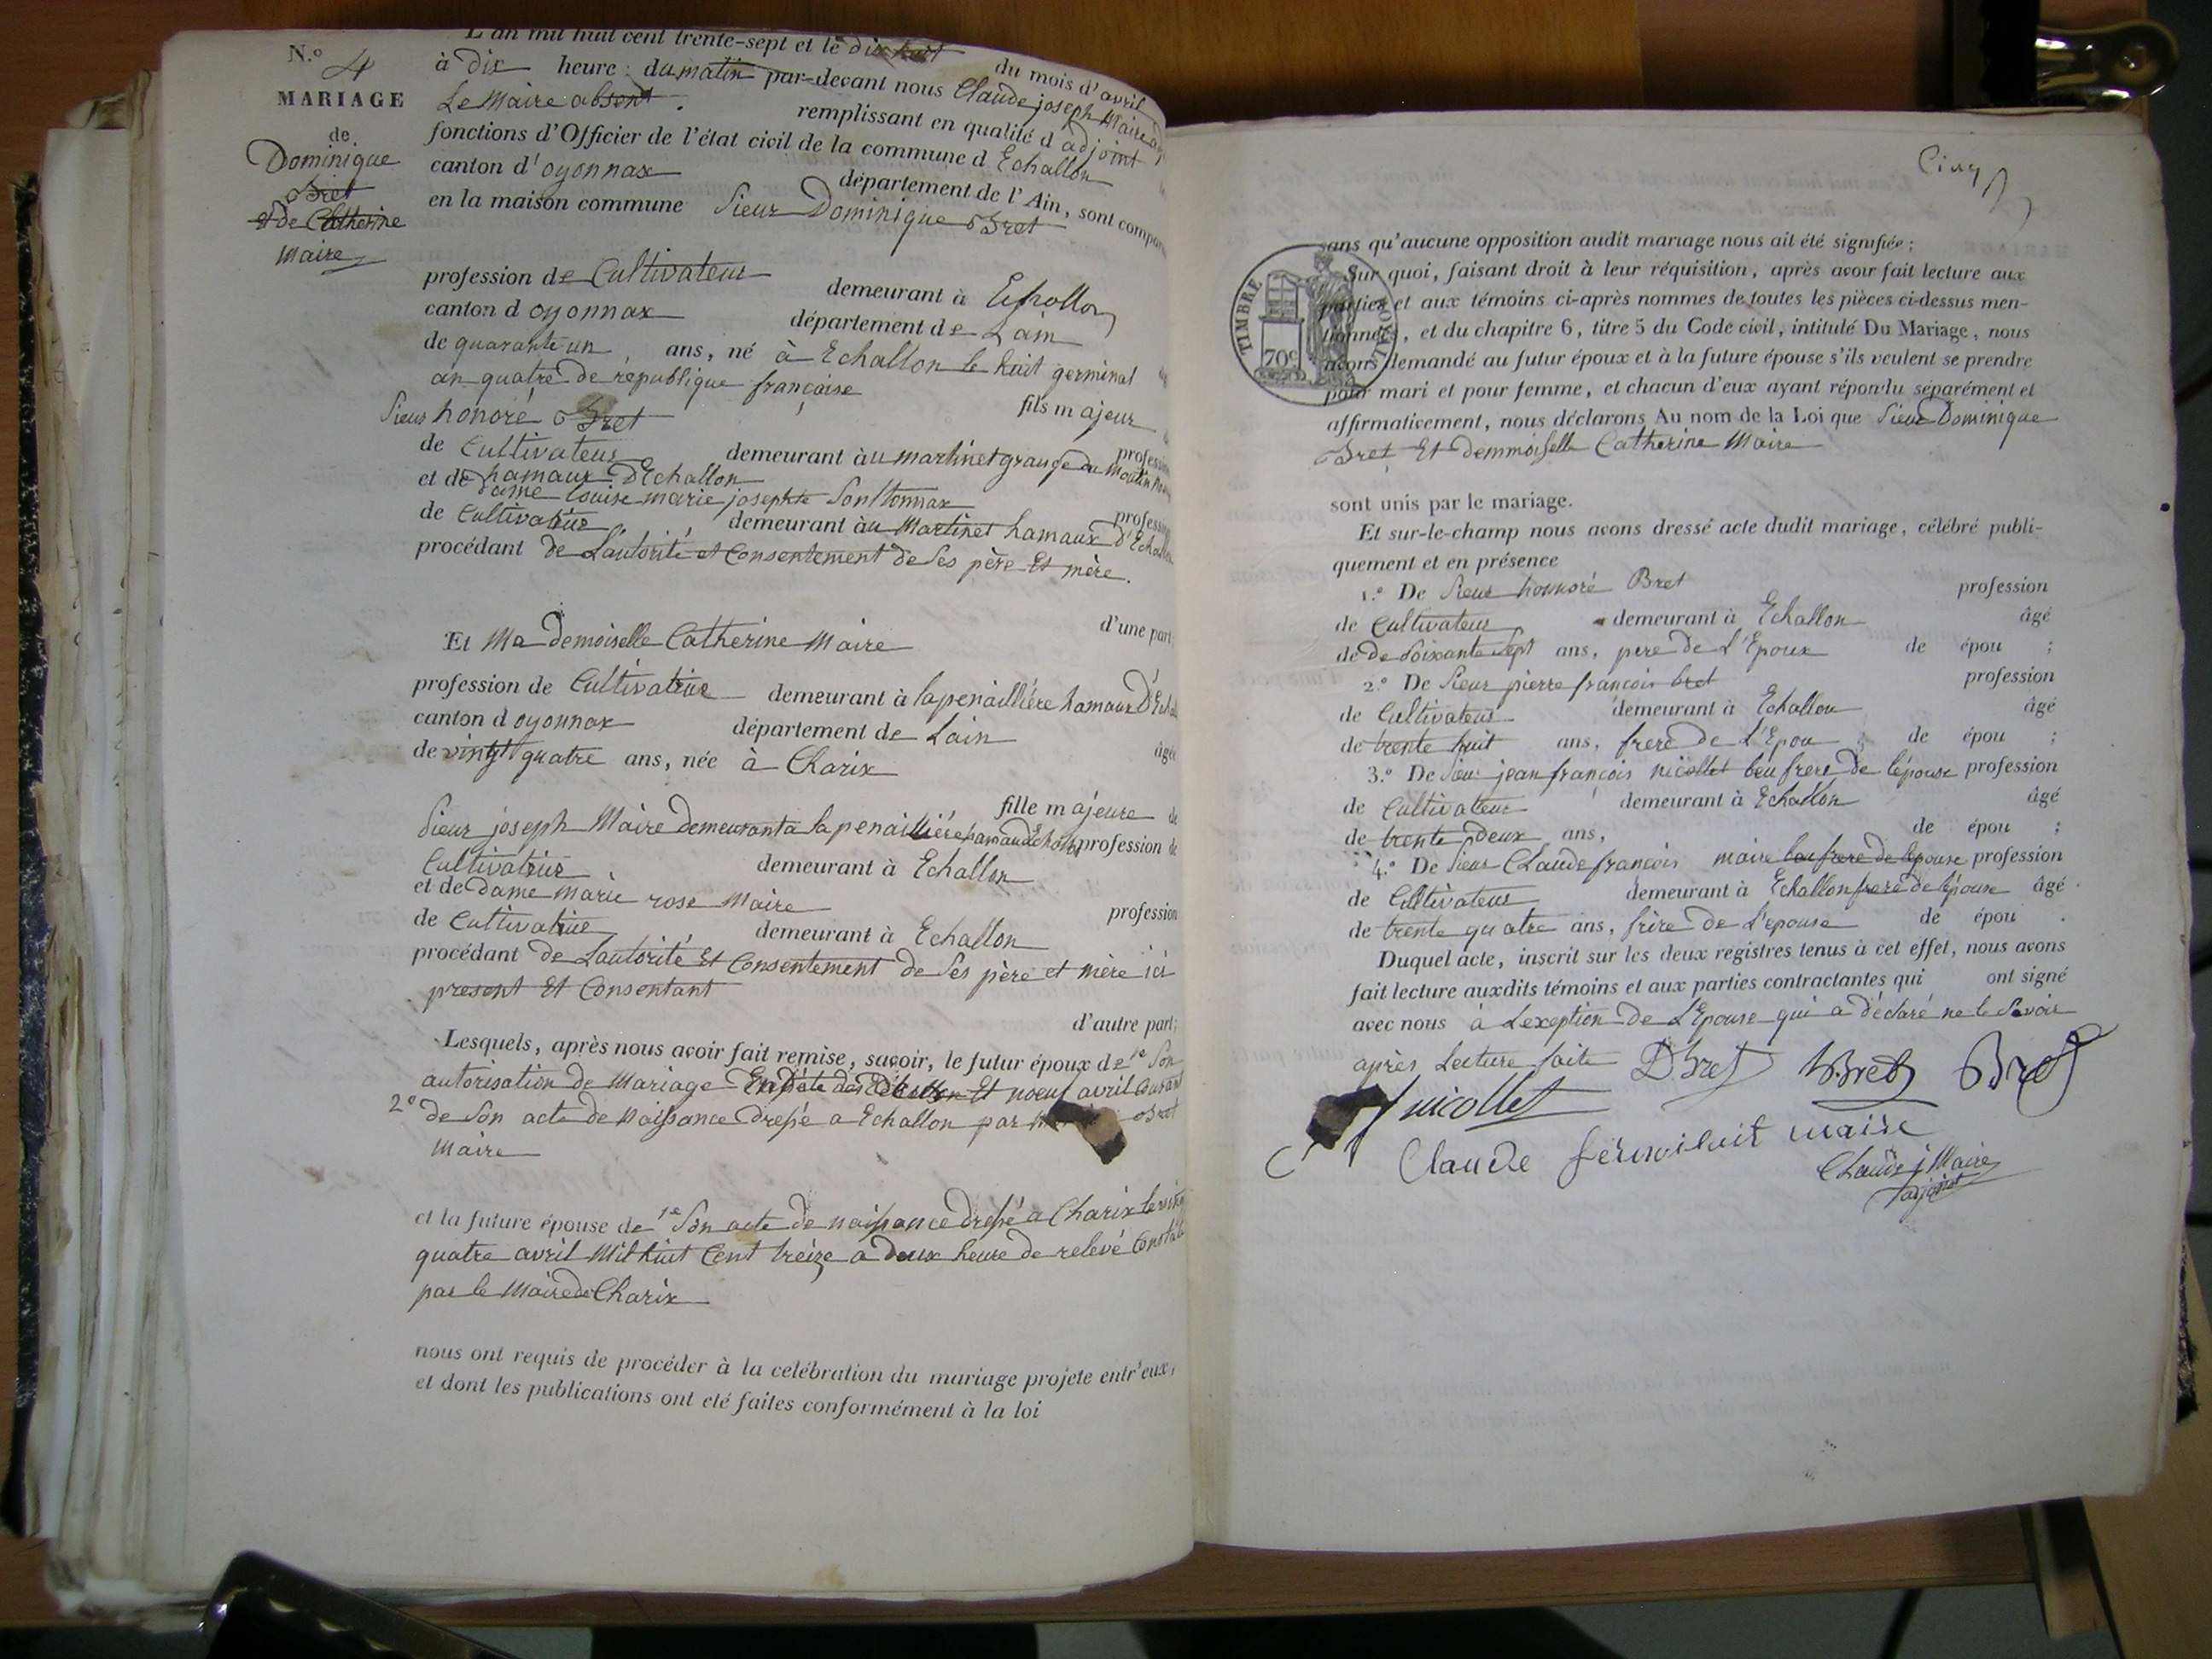 N.o 4
MARIAGE
de
Dominique
Bret
et de Catherine
Maire
L'an mil huit cent trente-sept et le dix huit du mois d'avril
à Dix heure du matin par-devant nous Claude joseph Maire
Le Maire absent. remplissant en qualité d adjoint
fonctions d'Officier de l'état civil de la commune d Echallon
canton d' oyonnax département de l'Ain, sont
en la maison commune Sieur Dominique Bret
profession de Cultivateur demeurant à Echallon
canton d oyonnax département de Lain
de quarante un ans, né à Echallon le huit germinal
an quatre de republique françaíse
fils majeur
Sieur honoré Bret
de Cultivateur demeurant au martinet grange du Moulin
hamaux D'Echallon
et de dame louise marie josephte Sonttonnax
de Cultivatrice demeurant au Martinet hamaux d'
procédant de Lautorité et Consentement de Ses père Et mère.
d'une part;
Et Mademoiselle Catherine Maire
profession de Cultivatrice demeurant à lapenaillière hamaux
canton d oyonnax département de Lain
âgée
de vingt quatre ans, née à Charix
fille majeure de
Sieur joseph Maire demeurant a lapenaillière profession de
Cultivateur demeurant à Echallon
et de Dame marie rose Maire profession
de Cultivatrice demeurant à Echallon
procédant de Lautorité Et Consentement de Ses père et mère ici
present Et Consentant
d'autre part;
Lesquels, après nous avoir fait remise, savoir, le futur époux de 1e Son
autorisation de Mariage En Date avril
2e de Son acte de Naissance Dressé a Echallon par Bret
Maire
et la future épouse de 1e Son acte de naissance dressé a Charix le
quatre avril Mil huit Cent treize a deux heure de relevé
par le Maire de Charix
nous ont requis de procéder à la celébration du mariage projeté entr'eux,
et dont les publications ont été faites conformément à la loi
Cinq
TIMBRE ROYAL
70c
sans qu'aucune opposition audit mariage nous ait été signifiée;
Sur quoi, faisant droit à leur réquisition, après avoir fait lecture aux
parties et aux témoins ci-après nommes de toutes les pièces ci-dessus men-
tionnées, et du chapitre 6, titre 5 du Code civil, intitulé Du Mariage, nous
avons demandé au futur époux et à la future épouse s'ils veulent se prendre
pour mari et pour femme, et chacun d'eux ayant répondu séparément et
affirmativement, nous déclarons Au nom de la Loi que Sieur Dominique
Bret Et Demmoiselle Catherine Maire
sont unis par le mariage.
Et sur-le-champ nous avons dressé acte dudit mariage, célébré publi-
quement et en présence
1.o De Sieur honnoré Bret profession
de Cultivateur demeurant à Echallon âgé
de De Soixante Sept ans, pere de L'Epoux de épou ;
2.o De Sieur pierre françois bret profession
de Cultivateur demeurant à Echallon âgé
de trente huit ans, frere de L'Epou de épou ;
3.o De Sieur jean françois nicollet beu frere de lépouse profession
de Cultivateur demeurant à Echallon âgé
de trente Deux ans, de épou ;
4.o De Sieur Claude françois maire beu frere de lépouse profession
de Cultivateur demeurant à Echallon frere de lépouse âgé
de trente quatre ans, frère de L'epouse de épou .
Duquel acte, inscrit sur les deux registres tenus à cet effet, nous avons
fait lecture auxdits témoins et aux parties contractantes qui ont signé
avec nous à Lexception de L'Epouse qui a déclaré ne le Savoir
après Lecture faite DBret hBret Bret
nicollet
Claude maire
Claude j Maire
adjoint